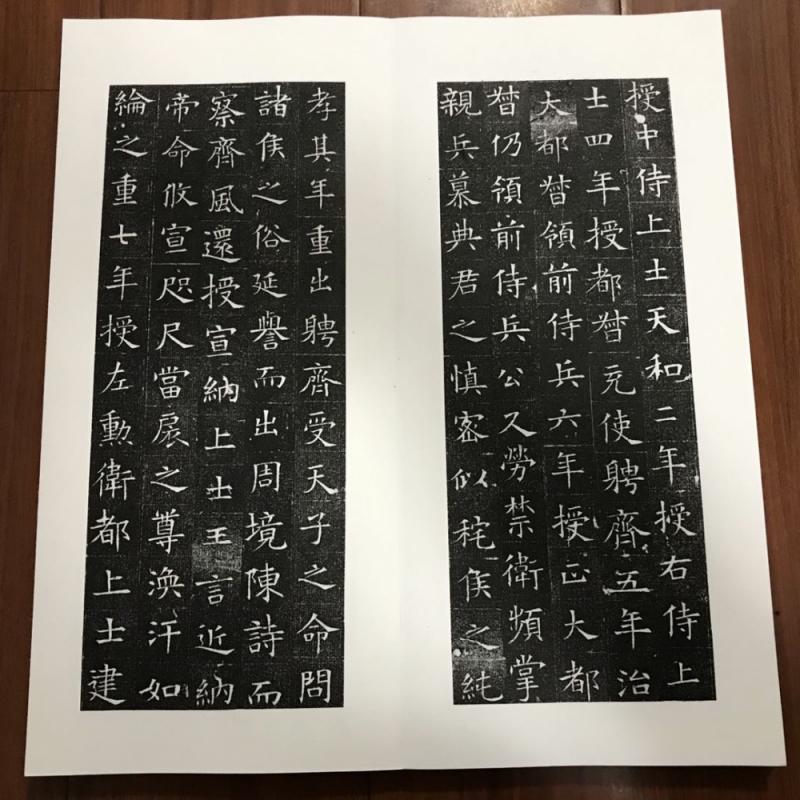 授中侍上士天和二年授右侍上
士四年授都督充使聘齊五年治
大都督領前侍兵六年授正大都
督仍領前侍兵公久勞禁衛頻掌
親兵慕典君之慎密似秺侯之純
孝其年重出聘齊受天子之命問
諸侯之俗延譽而出周境陳詩而
察齊風還授宣納上士王言近納
帝命攸宣咫尺當扆之尊渙汗如
綸之重七年授左勳衛都上士建